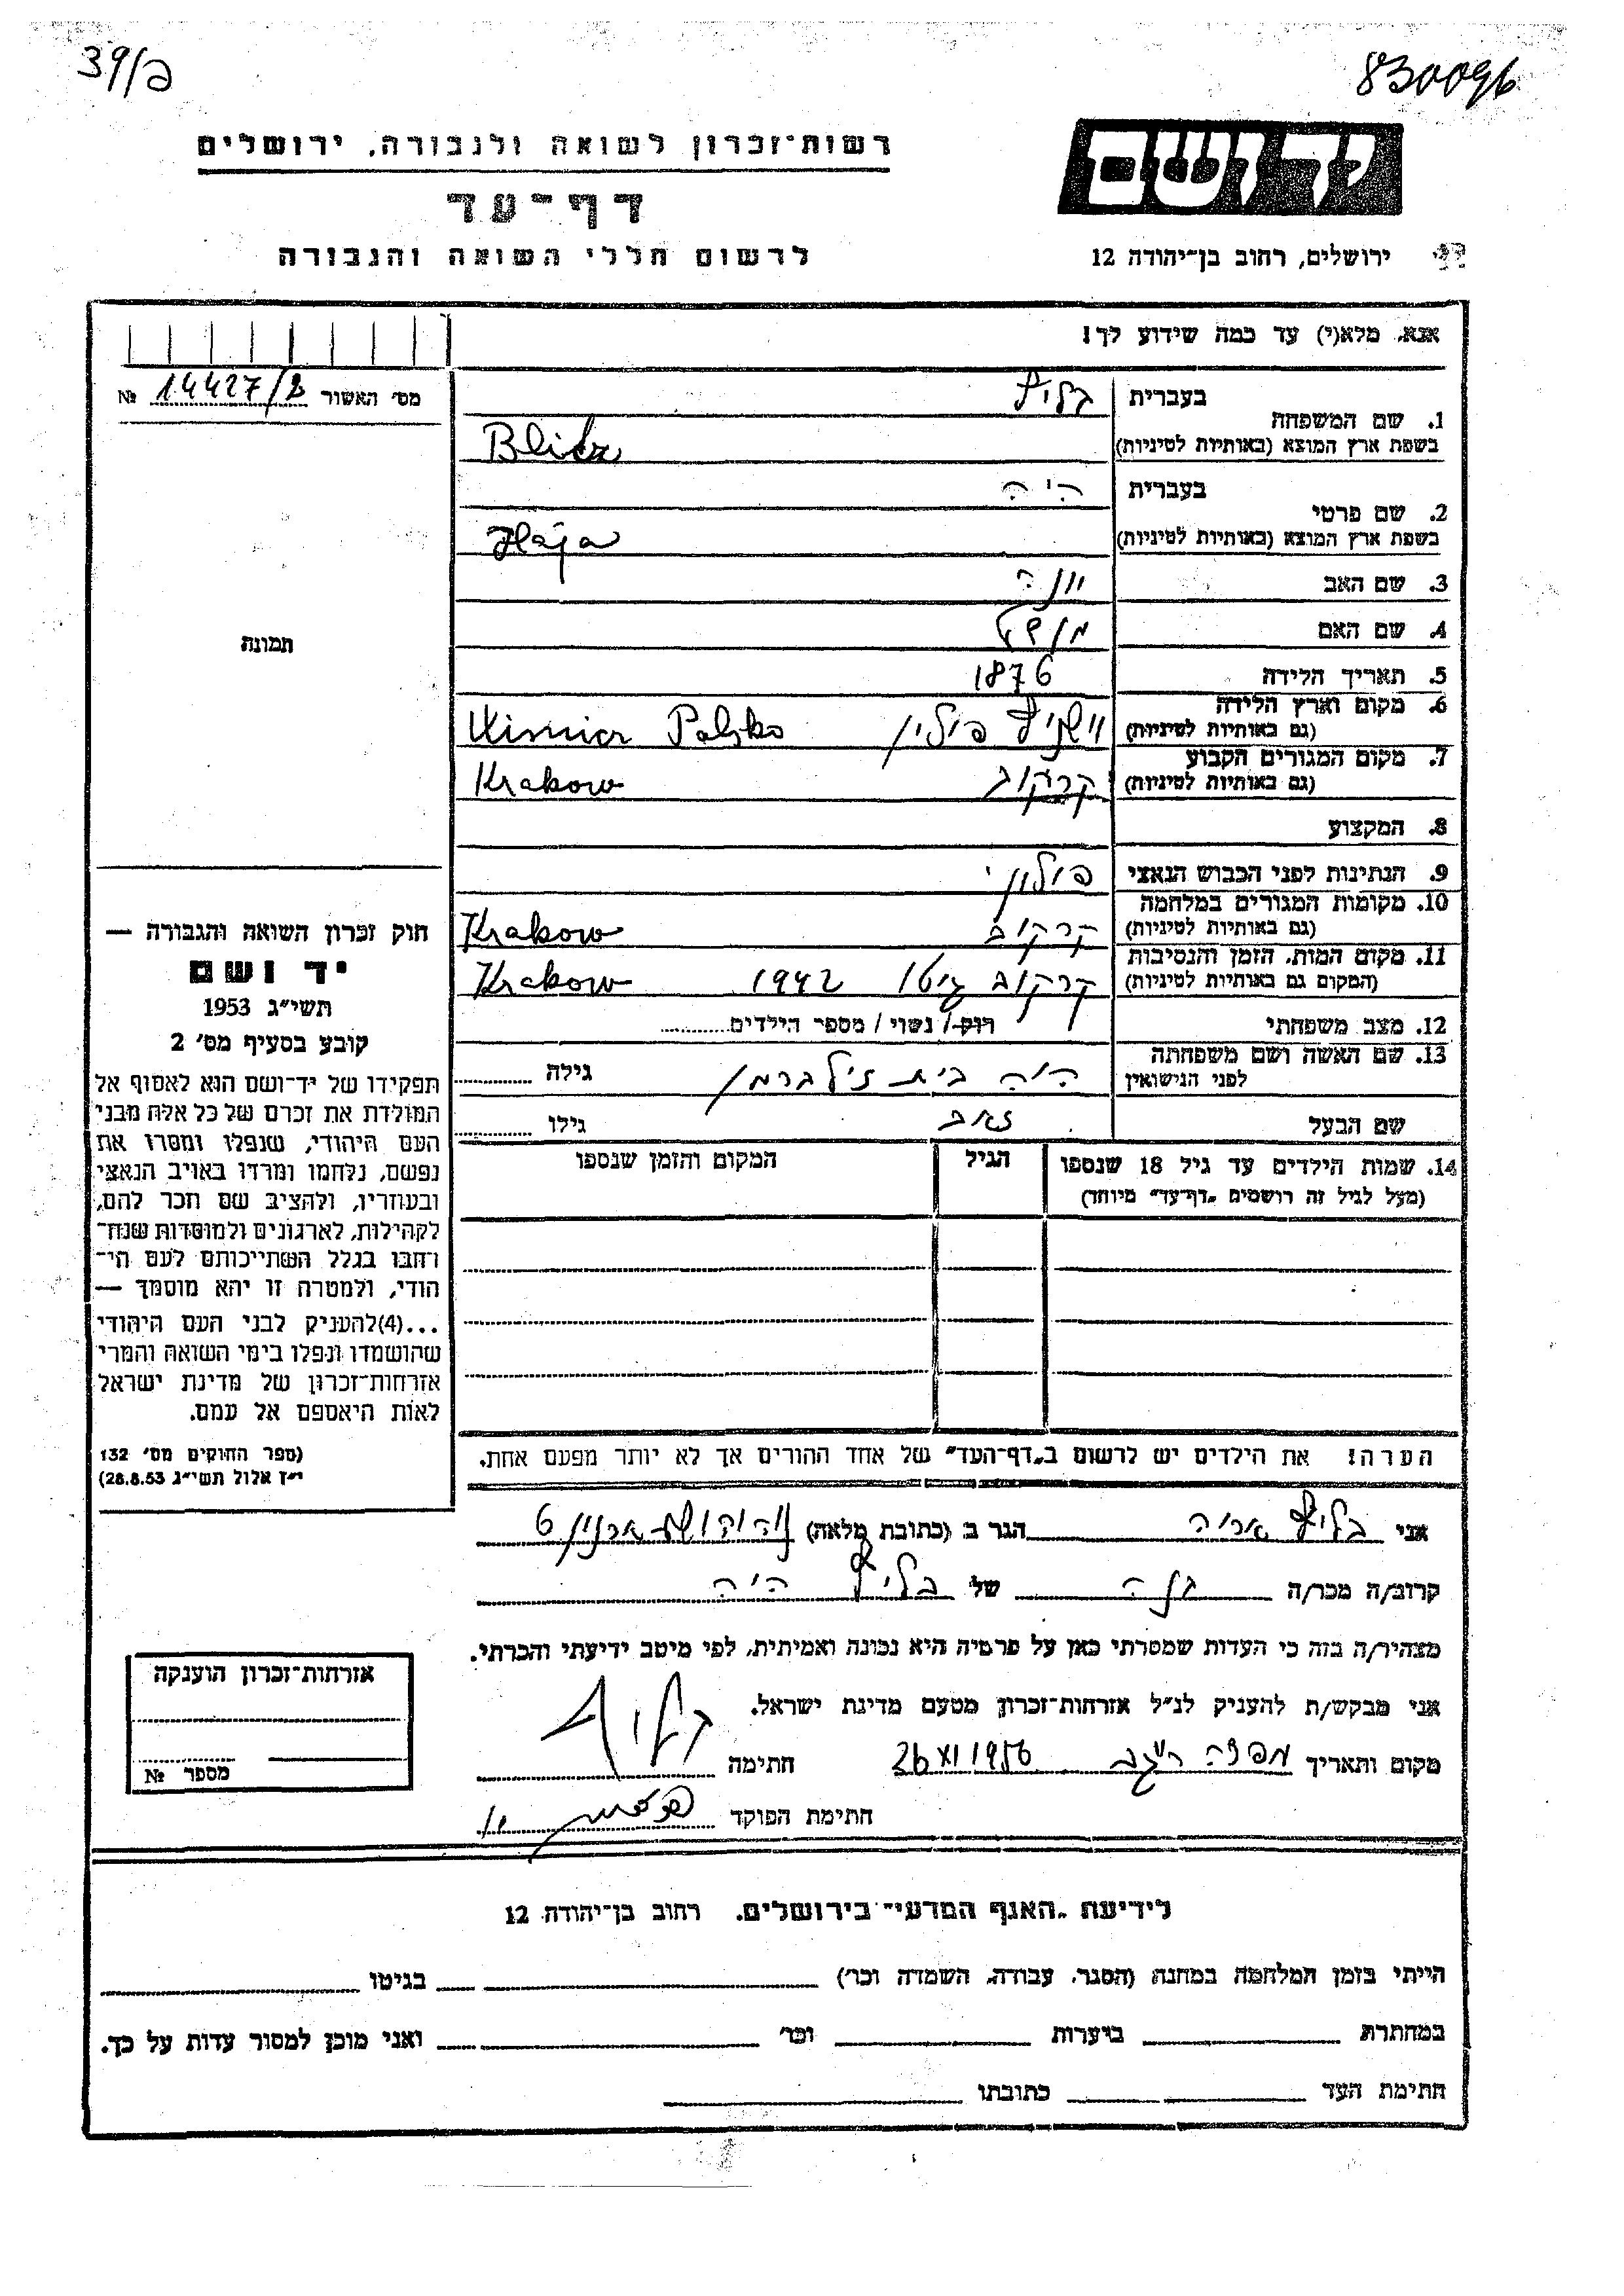 39/פ
830096
רשות־זכרון לשואה ולגבורה. ירושלים
יד ושם
דף־עד
לרשום חללי השואה והגבורה
ירושלים, רחוב בן־יהודה 12
אנא, מלא(י) עד כמה שידוע לך!
מס׳ האשור 14427/2 №
1. שם המשפחה
בעברית בליץ
בשפת ארץ המוצא (באותיות לטיניות) Blitz
2. שם פרטי
בעברית היה
בשפת ארץ המוצא (באותיות לטיניות) Haja
3. שם האב יונה
4. שם האם
5. תאריך הלידה 1876
6. מקום וארץ הלידה
(גם באותיות לטיניות) וישניץ פולין Wisnicz Polska
7. מקום המגורים הקבוע
(גם באותיות לטיניות) קרקוב Krakow
8. המקצוע
9. הנתינות לפני הכבוש הנאצי פולוני
10. מקומות המגורים במלחמה
(גם באותיות לטיניות) קרקוב Krakow
11. מקום המות, הזמן והנסיבות
(המקום גם באותיות לטיניות) קרקוב גיטו 1942 Krakow
12. מצב משפחתי רוק / נשוי / מספר הילדים
13. שם האשה ושם משפחתה
לפני הנישואין היה בית זילברמן גילה
שם הבעל זאב גילו
14. שמות הילדים עד גיל 18 שנספו
(מעל לגיל זה רושמים „דף־עד" מיוחד)
הגיל
המקום והזמן שנספו
הערה! את הילדים יש לרשום ב„דף־העד" של אחד ההורים אך לא יותר מפעם אחת.
תמונה
חוק זכרון השואה והגבורה —
יד ושם
תשי״ג 1953
קובע בסעיף מס׳ 2
תפקידו של יד־ושם הוא לאסוף אל
המולדת את זכרם של כל אלה מבני
העם היהודי, שנפלו ומסרו את
נפשם, נלחמו ומרדו באויב הנאצי
ובעוזריו, ולהציב שם וזכר להם,
לקהילות, לארגונים ולמוסדות שנח־
רחבו בגלל השתייכותם לעם הי־
הודי, ולמטרה זו יהא מוסמך —
...(4)להעניק לבני העם היהודי
שהושמדו ונפלו בימי השואה והמרי
אזרחות־זכרון של מדינת ישראל
לאות היאספם אל עמם.
(ספר החוקים מס׳ 132
י״ז אלול תשי״ג 28.8.53)
אני בליץ אריה הגר ב (כתובת מלאה) 6
קרוב/ה מכר/ה של בליץ היה
מצהיר/ה בזה כי העדות שמסרתי כאן על פרטיה היא נכונה ואמיתית, לפי מיטב ידיעתי והכרתי.
אני מבקש/ת להעניק לנ״ל אזרחות־זכרון מטעם מדינת ישראל.
מקום ותאריך 26 XI 1956 חתימה בליץ
חתימת הפוקד
אזרחות־זכרון הוענקה
מספר №
לידיעת „האגף המדעי" בירושלים, רחוב בן־יהודה 12
הייתי בזמן המלחמה במחנה (הסגר, עבודה, השמדה וכו׳) בגיטו
במחתרת ביערות וכו׳ ואני מוכן למסור עדות על כך.
חתימת העד כתובתו